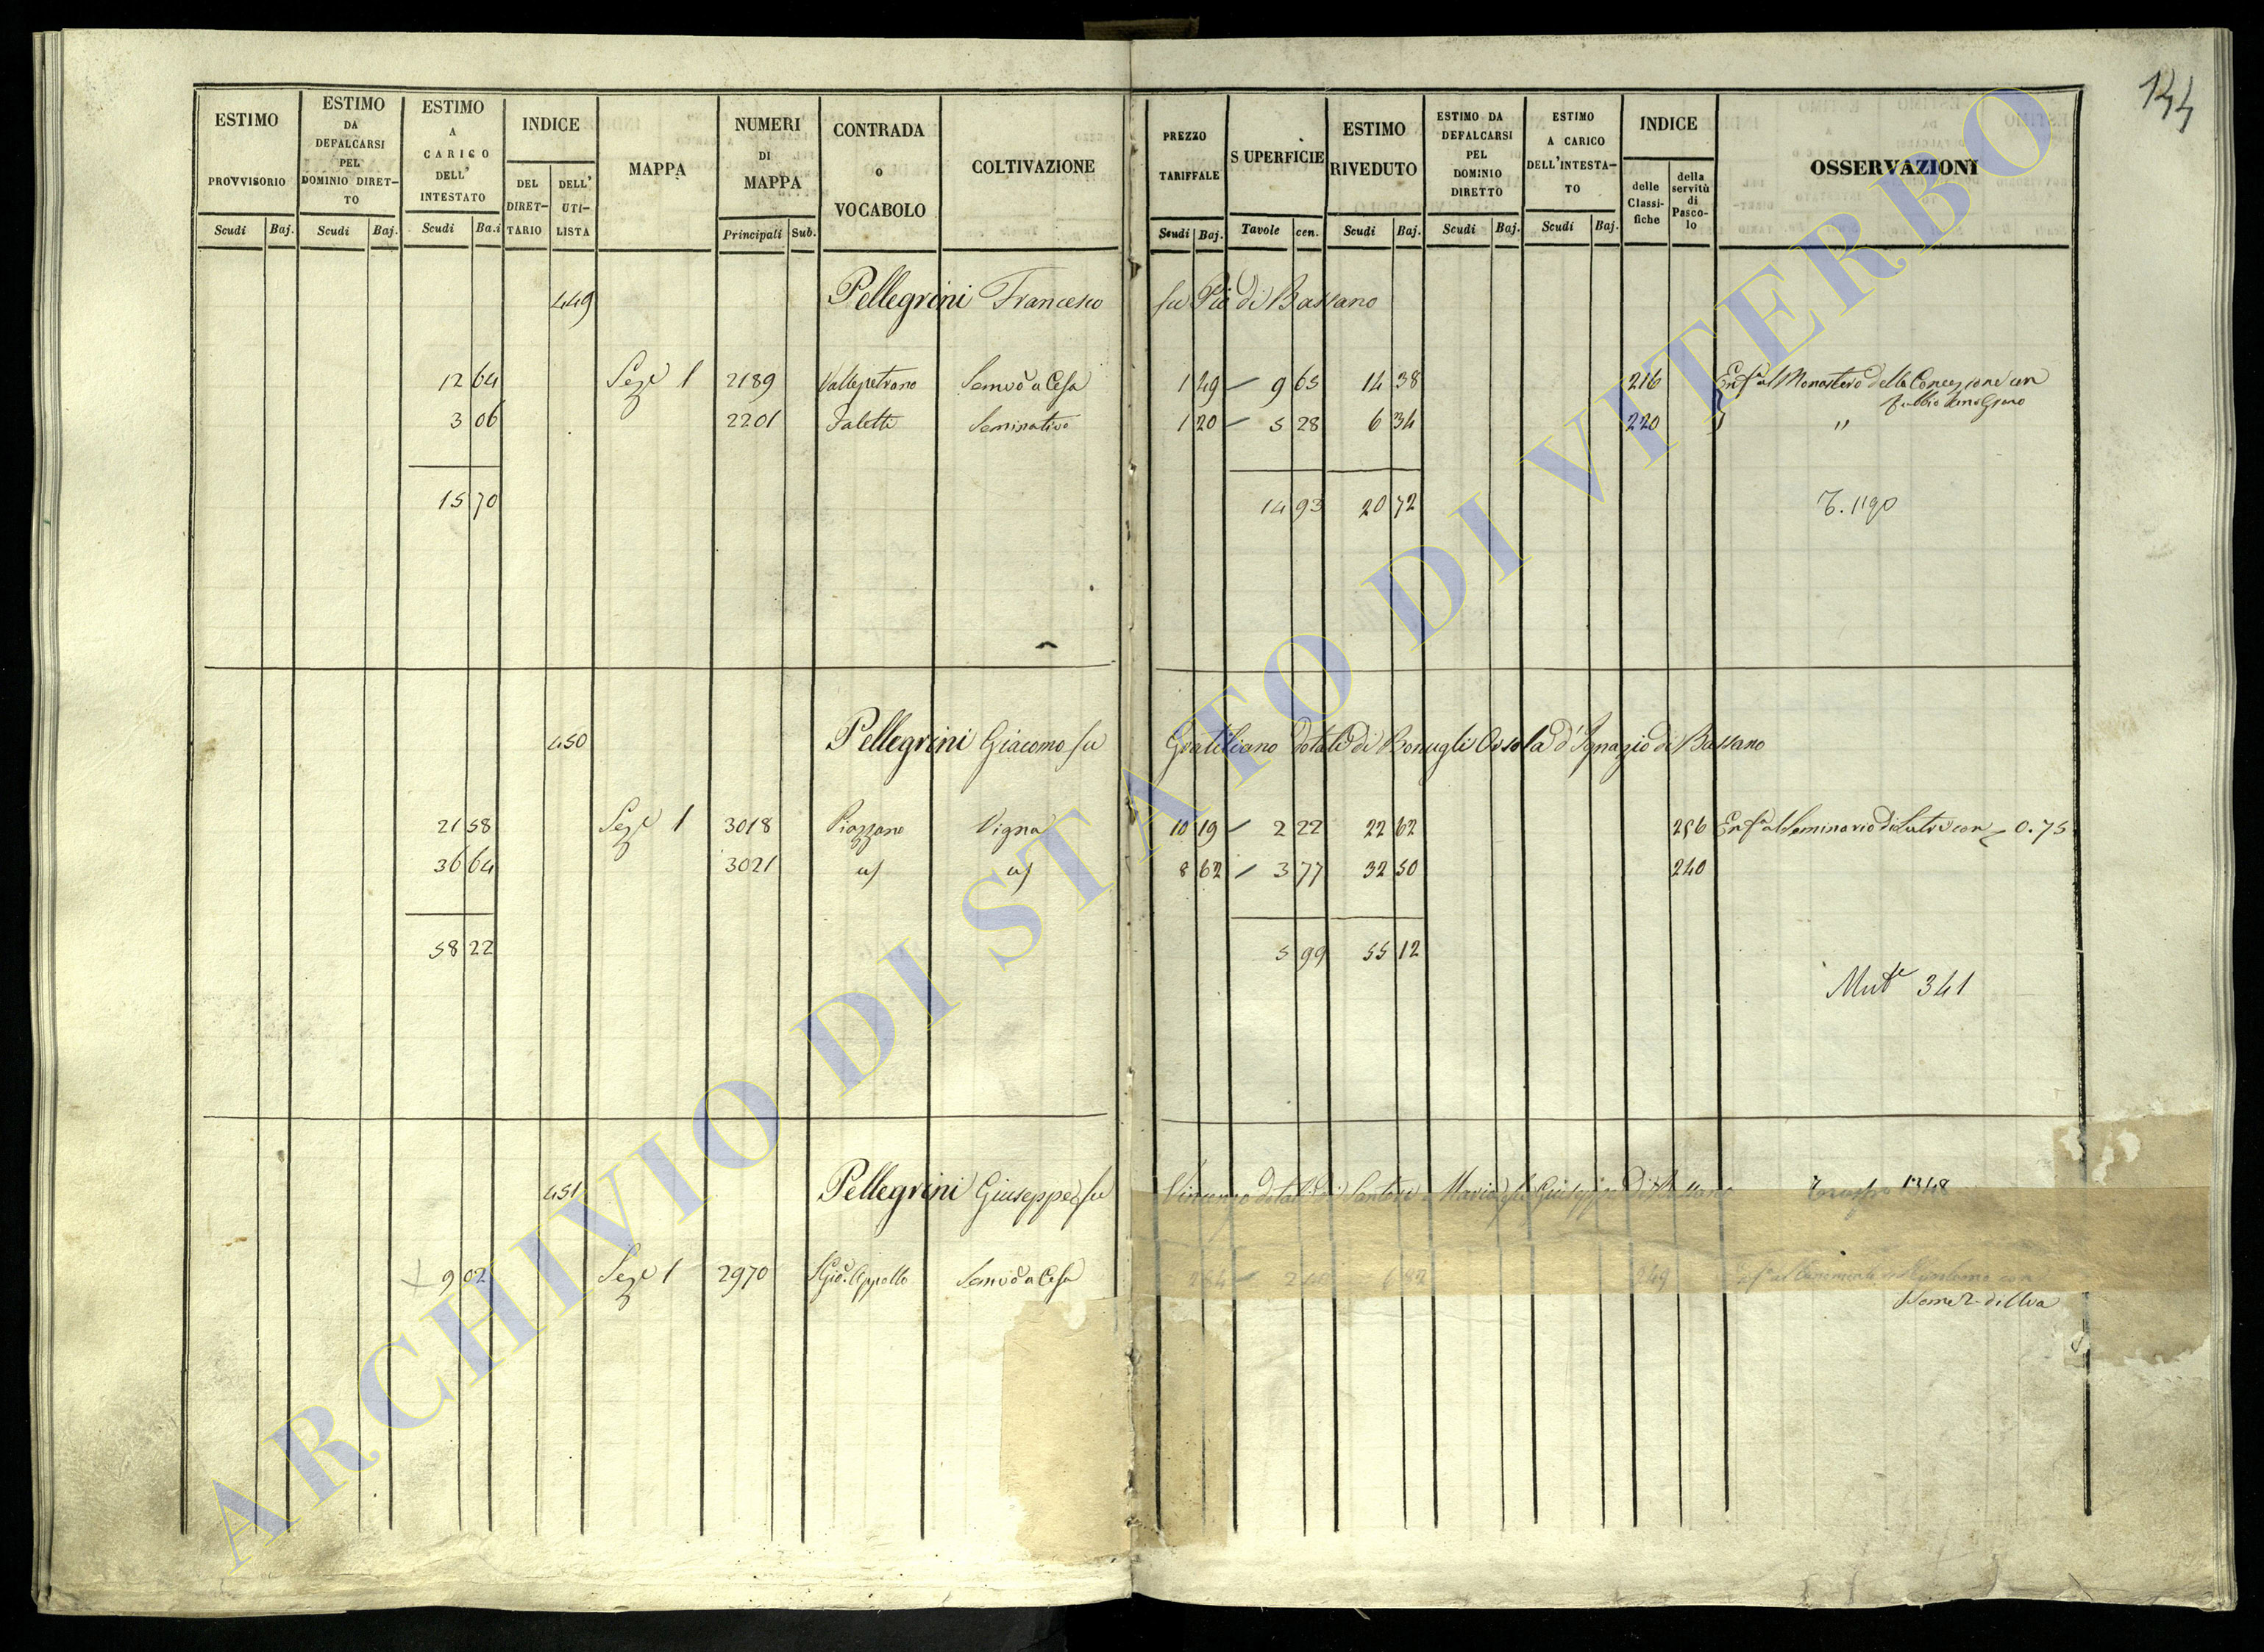 144
ESTIMO PROVVISORIO
ESTIMO DA DEFALCARSI PEL DOMINIO DIRET-TO
ESTIMO A CARICO DELL' INTESTATO
INDICE
DEL DIRET-TARIO
DELL' UTI-LISTA
MAPPA
NUMERI DI MAPPA
CONTRADA O VOCABOLO
COLTIVAZIONE
PREZZO TARIFFALE
SUPERFICIE
ESTIMO RIVEDUTO
ESTIMO DA DEFALCARSI PEL DOMINIO DIRETTO
ESTIMO A CARICO DELL'INTESTA-TO
INDICE
delle Classi-fiche
della servitù di Pasco-lo
OSSERVAZIONI
Scudi Baj. Scudi Baj. Scudi Ba.i Principali Sub. Scudi Baj. Tavole cen. Scudi Baj. Scudi Baj. Scudi Baj.
449 Pellegrini Francesco fu Pio di Bassano
12 64 Seze 1 2189 Vallepetrano Semvo a Cesa 1 49 9 65 14 38 216 Enfa al Monastero della Concezione con
3 06 2201 Seminativo 1 20 5 28 6 34 220 "
15 70 14 93 20 72 T. 1190
450 Pellegrini Giacomo fu Gratiliano dotale di Bonugli Orsola d'Ignazio di Bassano
21 58 Seze 1 3018 Piazzano Vigna 10 19 2 22 22 62 256 Enfa al Seminario di Sutri con 0.75
36 64 3021 8 62 3 77 32 50 240
58 22 5 99 55 12
Mute 341
451 Pellegrini Giuseppe fu Vincenzo dotale di Santori Maria di Giuseppe di Bassano 1348
9 02 Seze 1 2970 S. Gio. Appollo Semvo a Cesa 2 84 2 40 6 82 249
Some 2 di Uva
ARCHIVIO DI STATO DI VITERBO